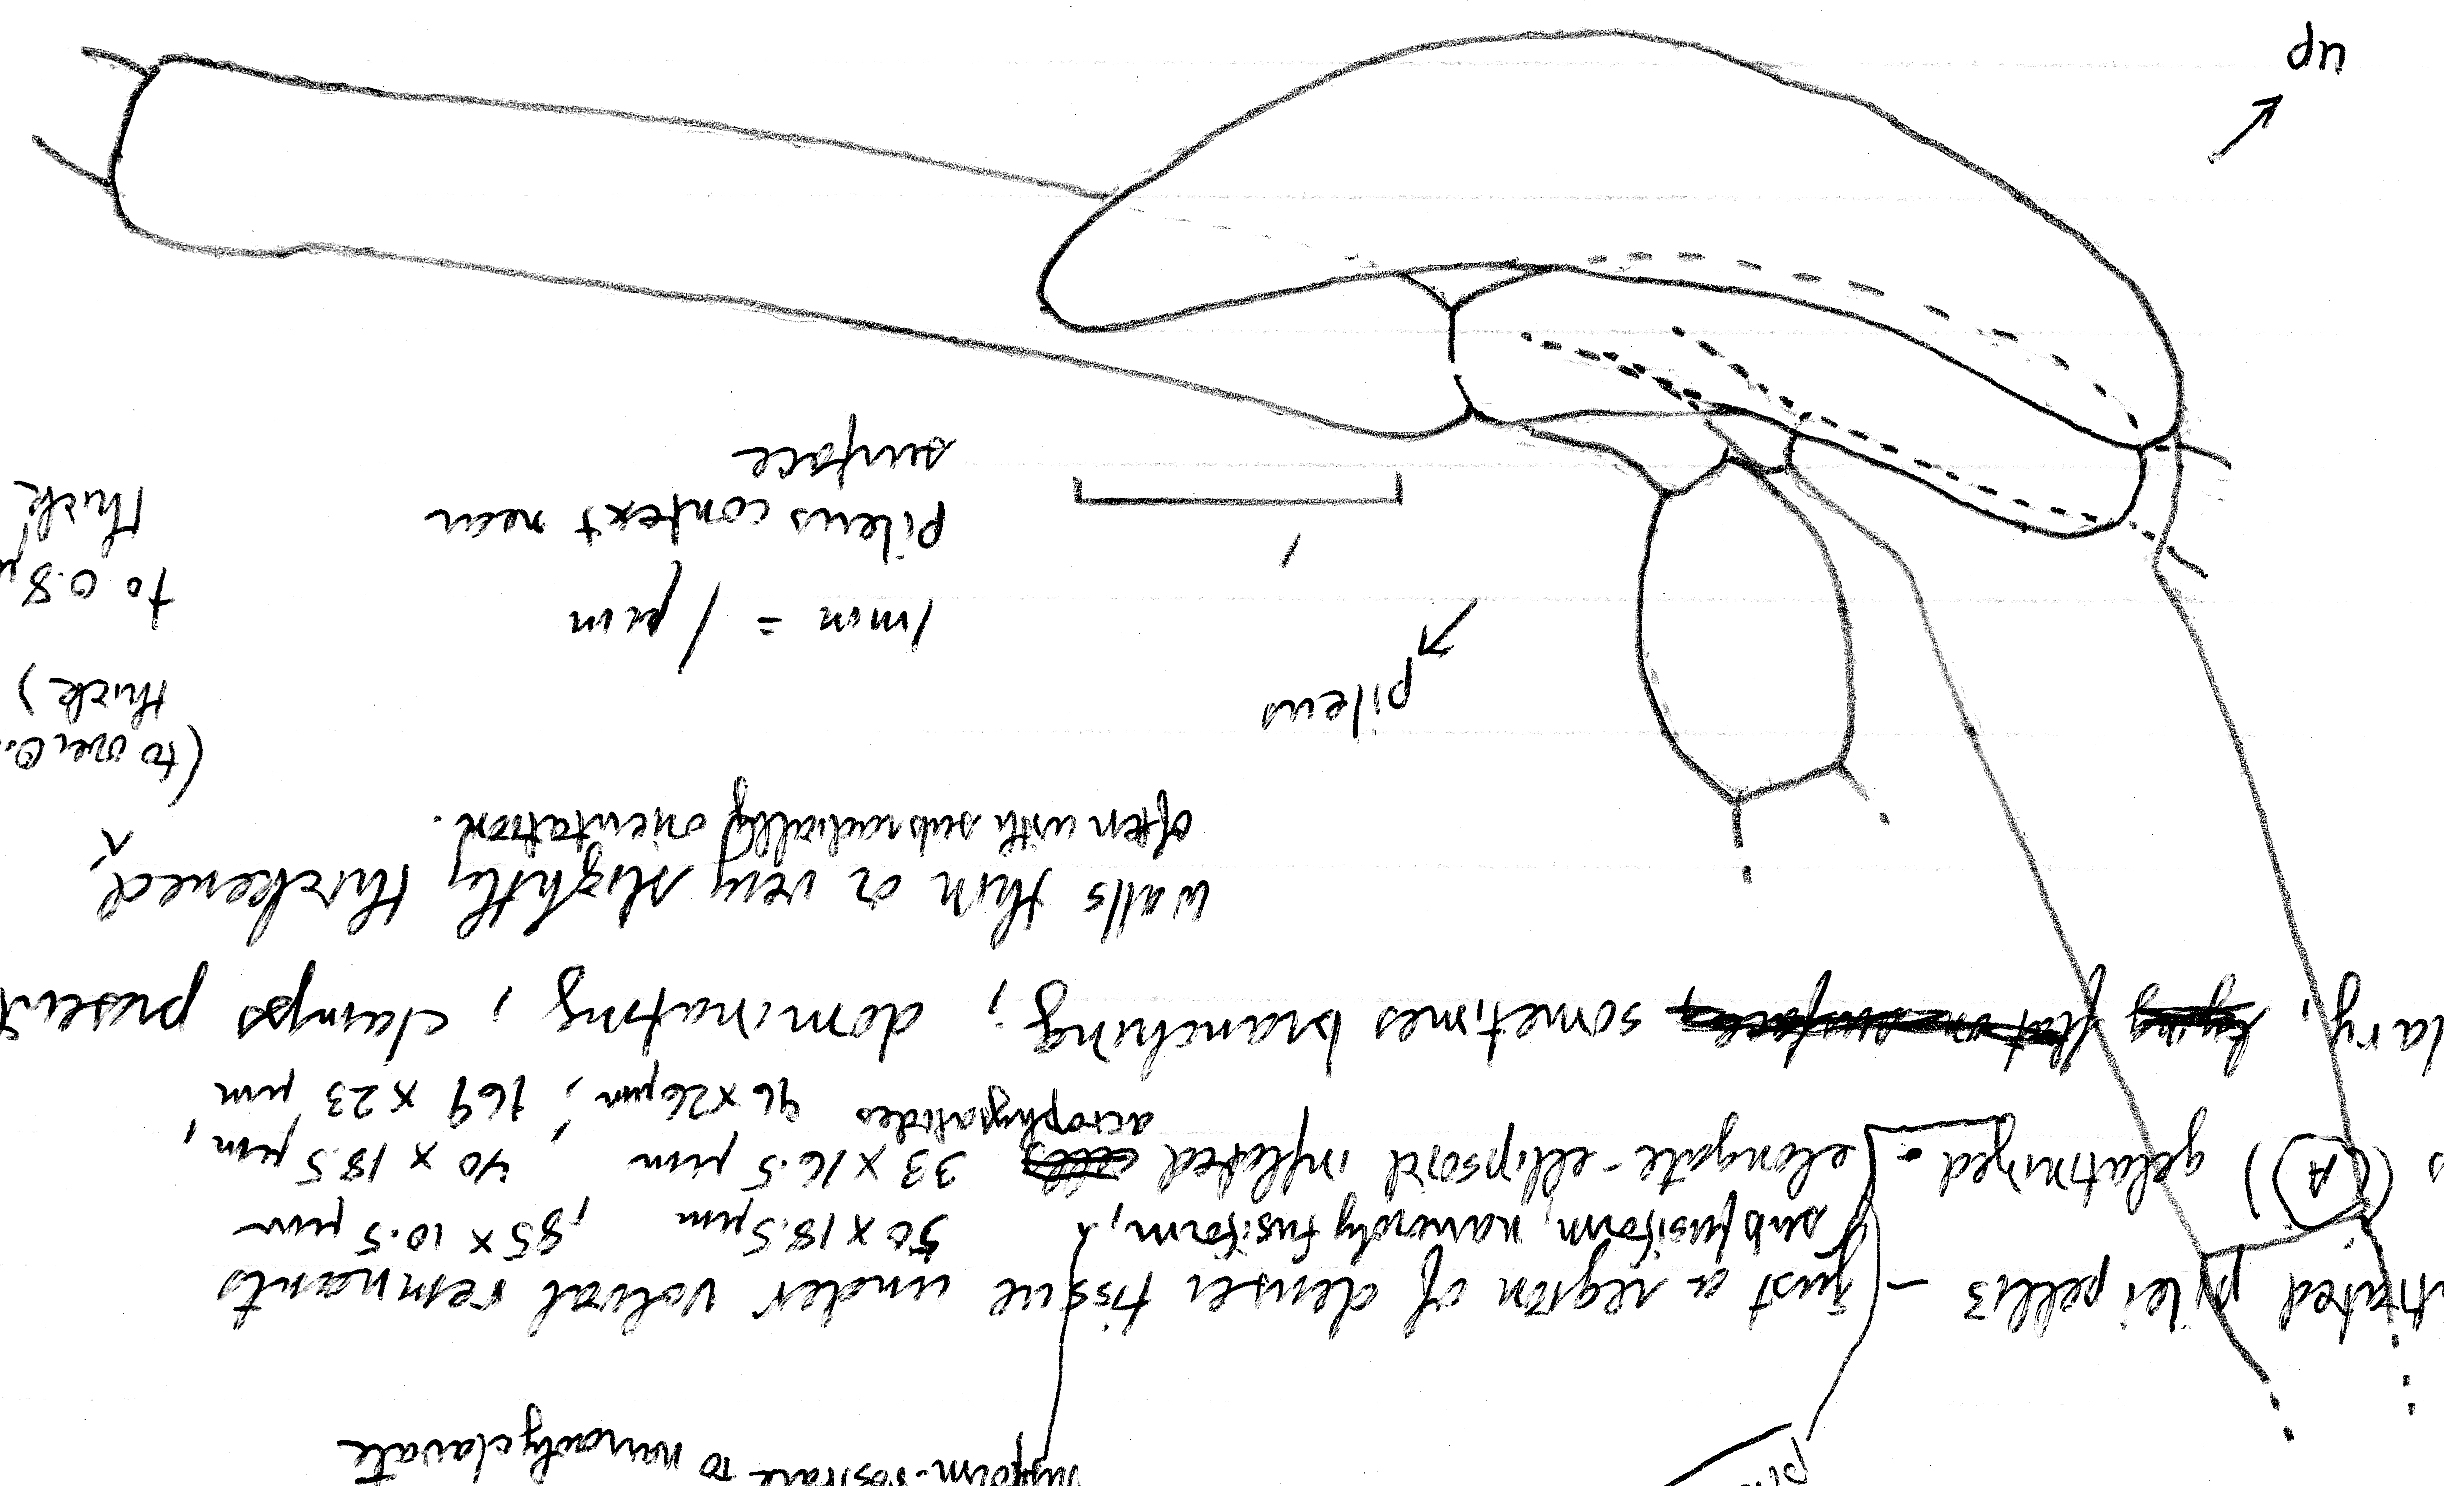 to narrowly clavate
pileipellis – just a region of denser tissue under volval remnants
subfusiform, narrowly fusiform, 50 x 18.5 µm, 85 x 10.5 µm
(A)) gelatinized. elongate-ellipsoid inflated cells 33 x 16.5 µm, 40 x 18.5 µm,
acrophysalides 96 x 26 µm; 169 x 23 µm
lary, lying flat on surface, sometimes branching; dominating; clamps present
walls thin or very slightly thickened,
often with subradially orientation.
(to over 0.
thick)
pileus
1mm = 1 µm
to 0.8 µ
thick
pileus context near
surface
up